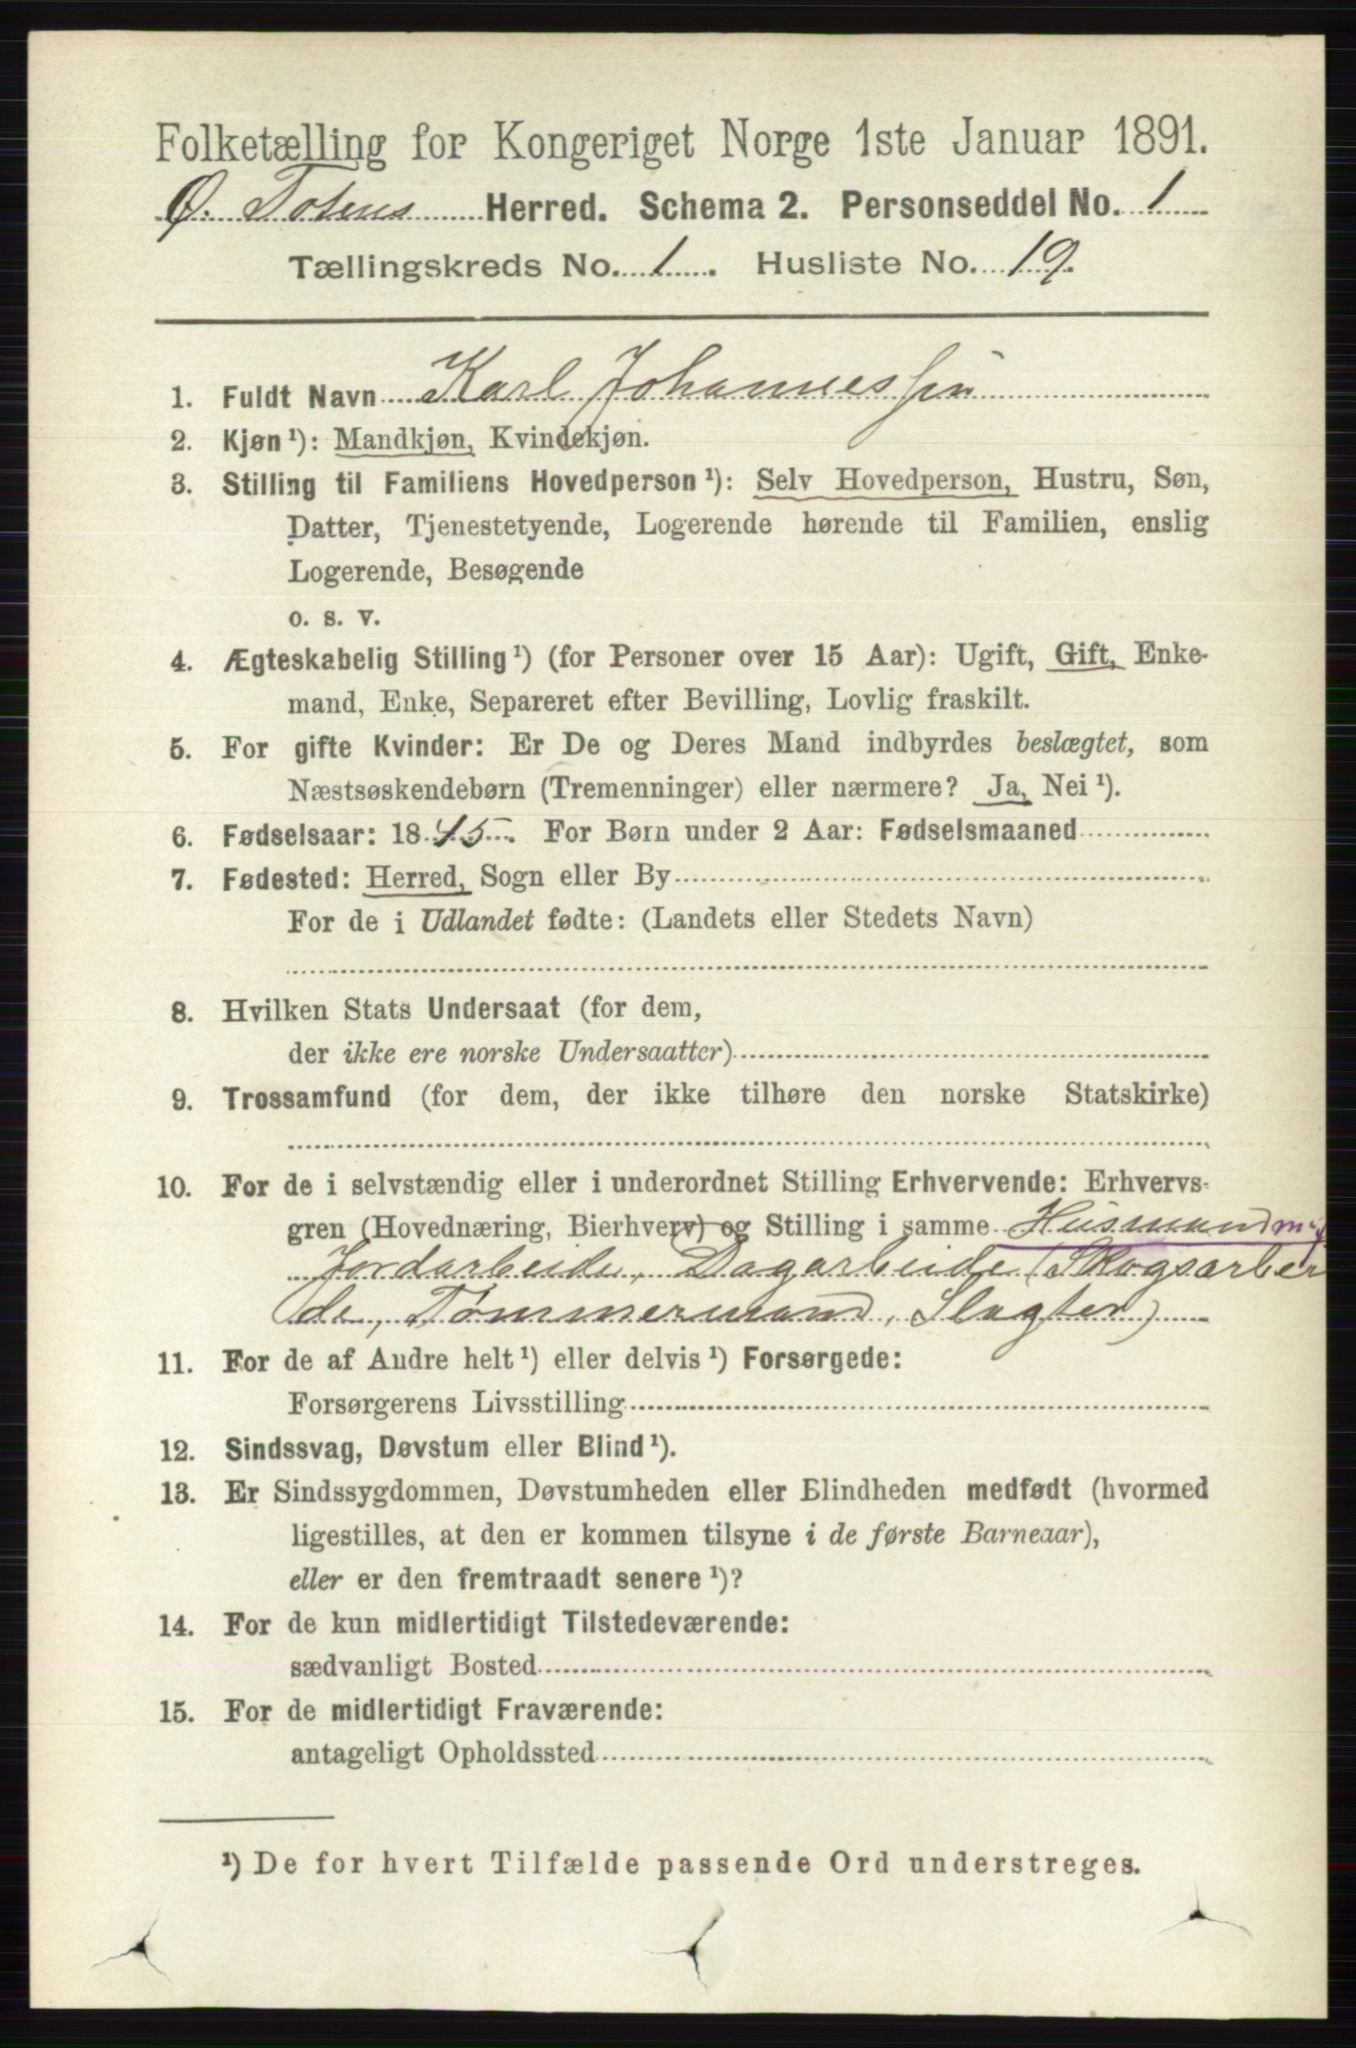 Folketælling for Kongeriget Norge 1ste Januar 1891.
Ø. Totens Herred. Schema 2. Personseddel No. 1
Tællingskreds No. 1. Husliste No. 19.
1. Fuldt Navn Karl Johannessen
2. Kjøn ¹): Mandkjøn, Kvindekjøn.
3. Stilling til Familiens Hovedperson ¹): Selv Hovedperson, Hustru, Søn,
Datter, Tjenestetyende, Logerende hørende til Familien, enslig
Logerende, Besøgende
o. s. v.
4. Ægteskabelig Stilling ¹) (for Personer over 15 Aar): Ugift, Gift, Enke-
mand, Enke, Separeret efter Bevilling, Lovlig fraskilt.
5. For gifte Kvinder: Er De og Deres Mand indbyrdes beslægtet, som
Næstsøskendebørn (Tremenninger) eller nærmere? Ja, Nei ¹).
6. Fødselsaar: 1845. For Børn under 2 Aar: Fødselsmaaned
7. Fødested: Herred, Sogn eller By
For de i Udlandet fødte: (Landets eller Stedets Navn)
8. Hvilken Stats Undersaat (for dem,
der ikke ere norske Undersaatter)
9. Trossamfund (for dem, der ikke tilhøre den norske Statskirke)
10. For de i selvstændig eller i underordnet Stilling Erhvervende: Erhvervs-
gren (Hovednæring, Bierhverv) og Stilling i samme Husmand m/j
Jordarbeide, Dagarbeide (Skogsarbei
de, Tømmermand, Slagter)
11. For de af Andre helt ¹) eller delvis ¹) Forsørgede:
Forsørgerens Livsstilling
12. Sindssvag, Døvstum eller Blind ¹).
13. Er Sindssygdommen, Døvstumheden eller Blindheden medfødt (hvormed
ligestilles, at den er kommen tilsyne i de første Barneaar),
eller er den fremtraadt senere ¹)?
14. For de kun midlertidigt Tilstedeværende:
sædvanligt Bosted
15. For de midlertidigt Fraværende:
antageligt Opholdssted
¹) De for hvert Tilfælde passende Ord understreges.